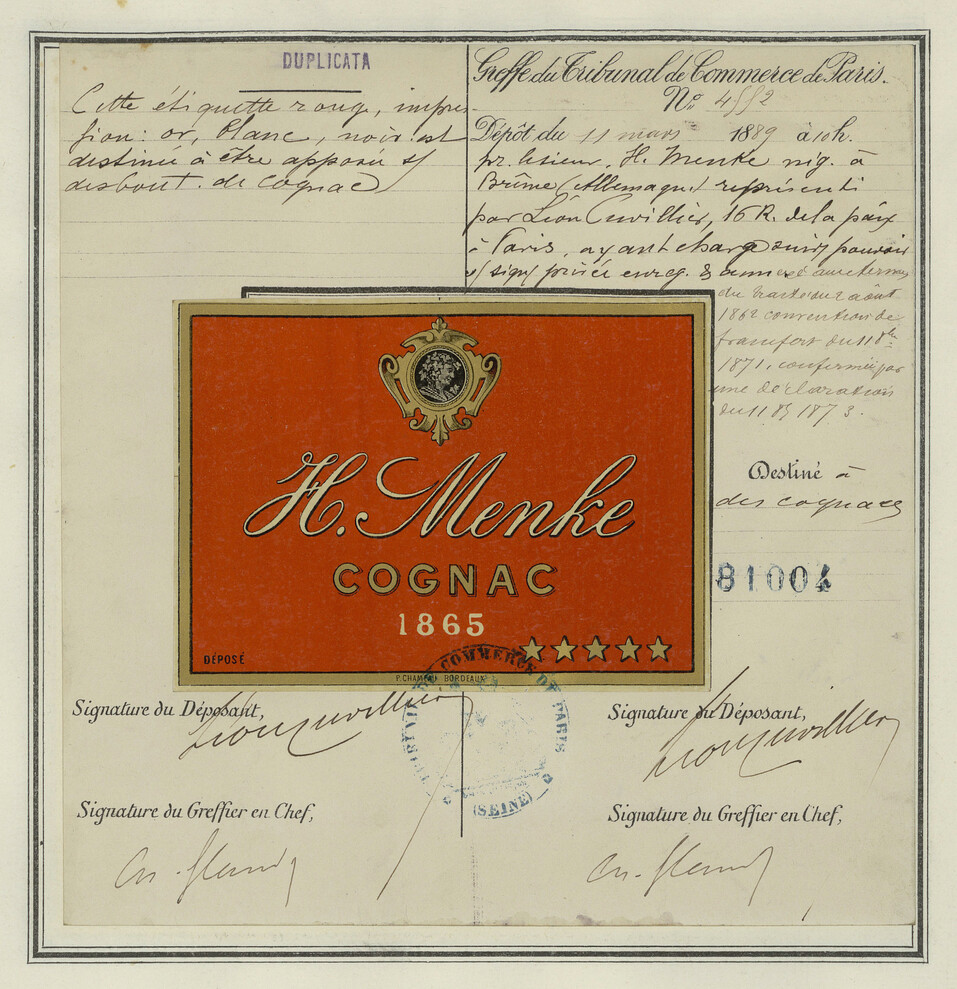 DUPLICATA
Cette étiquette rouge, impres-
sion: or, blanc, noir est
destinée à être apposée s/
des bout. de Cognac
Greffe du Tribunal de Commerce de Paris.
No. 4552
Dépôt du 11 mars 1889 à 10h.
pr. le sieur. H. Menke nég. à
Brême (Allemagne) représenté
par Léon Cuvillier, 16 R. de la paix
à Paris, ayant charge suiv/ pouvoir
s/ sign/ privée enreg. & annexé aux termes
du traité du 2 août
1862 convention de
francfort du 11
1871, confirmée par
une déclaration
du 8 1873.
H. Menke
COGNAC
1865
DÉPOSÉ
BORDEAUX
Destiné à
des cognacs
81004
COMMERCE DE PARIS
(SEINE)
Signature du Déposant,
Léon Cuvillier
Signature du Déposant,
Léon Cuvillier
Signature du Greffier en Chef,
Signature du Greffier en Chef,